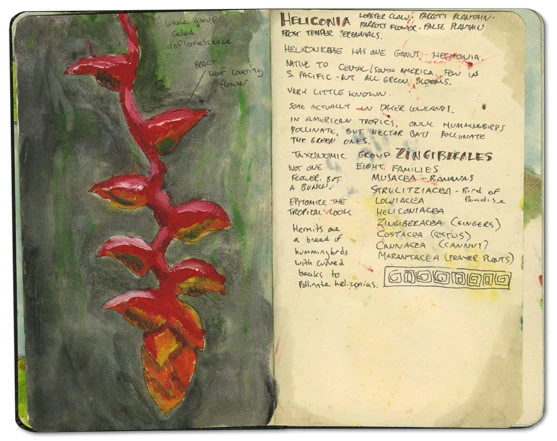 whole group
called
inflorescence
BRACT
leaf covering
flower
HELICONIA LOBSTER CLAW, PARROTS PLANTAIN.
PARROTS FLOWER. FALSE PLANTAIN
FROST TENDER PERENNIALS.
HELICONIACEAE HAS ONE GENUS, HELICONIA.
NATIVE TO CENTRAL/SOUTH AMERICA, FEW IN
S. PACIFIC - BUT ALL GREEN BLOOMS.
VERY LITTLE KNOWN.
SOME ACTUALLY IN LOWLANDS.
IN AMERICAN TROPICS, ONLY HUMMINGBIRDS
POLLINATE, BUT NECTAR BATS POLLINATE
THE GREEN ONES.
TAXONOMIC GROUP ZINGIBERALES
NOT ONE
FLOWER, BUT
A BUNCH.
EPITOMISE THE
TROPICAL LOOK
Hermits are
a breed of
hummingbirds
with curved
beaks to
Pollinate heliconias.
EIGHT FAMILIES
MUSACEA - BANANAS
STRULITZIACEA - Bird of
Paradise
LOWIACEA
HELICONIACEA
ZINGIBERACEA (GINGERS)
COSTACEA (COSTUS)
CANNACEA (CANNU?)
MARANTACEA (PRAYER PLANTS)